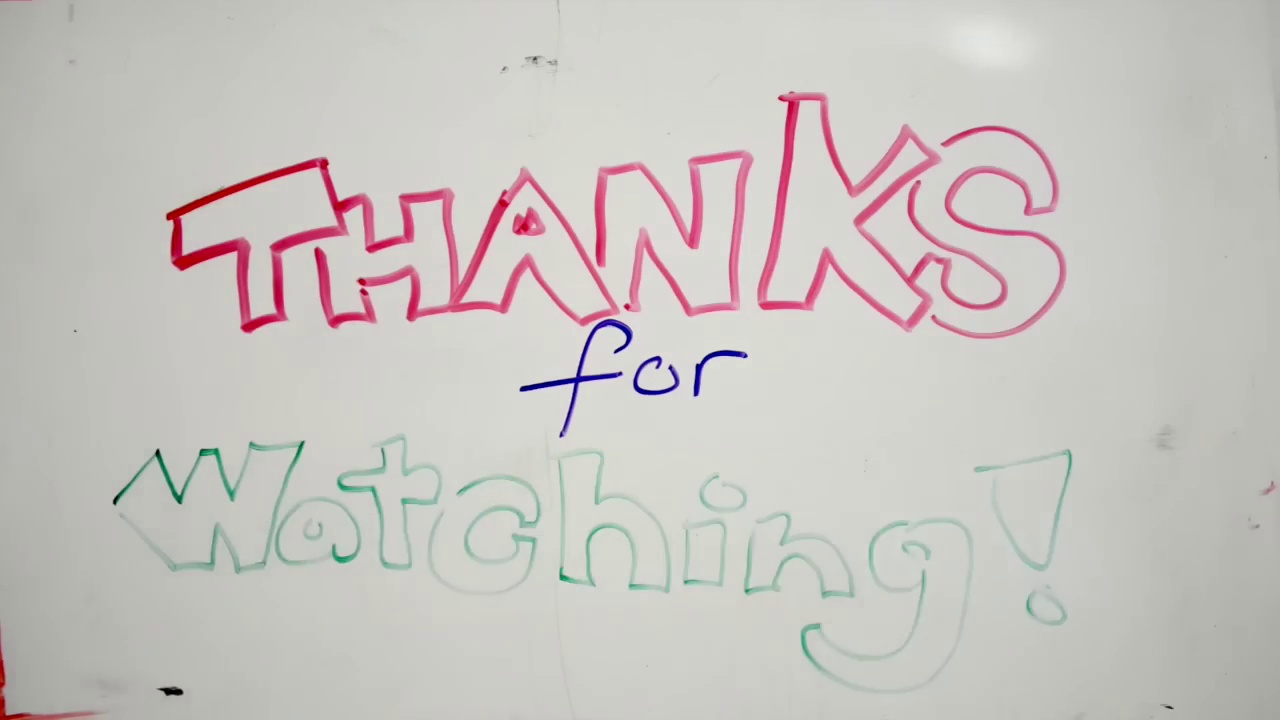 THANKS
for
Watching!